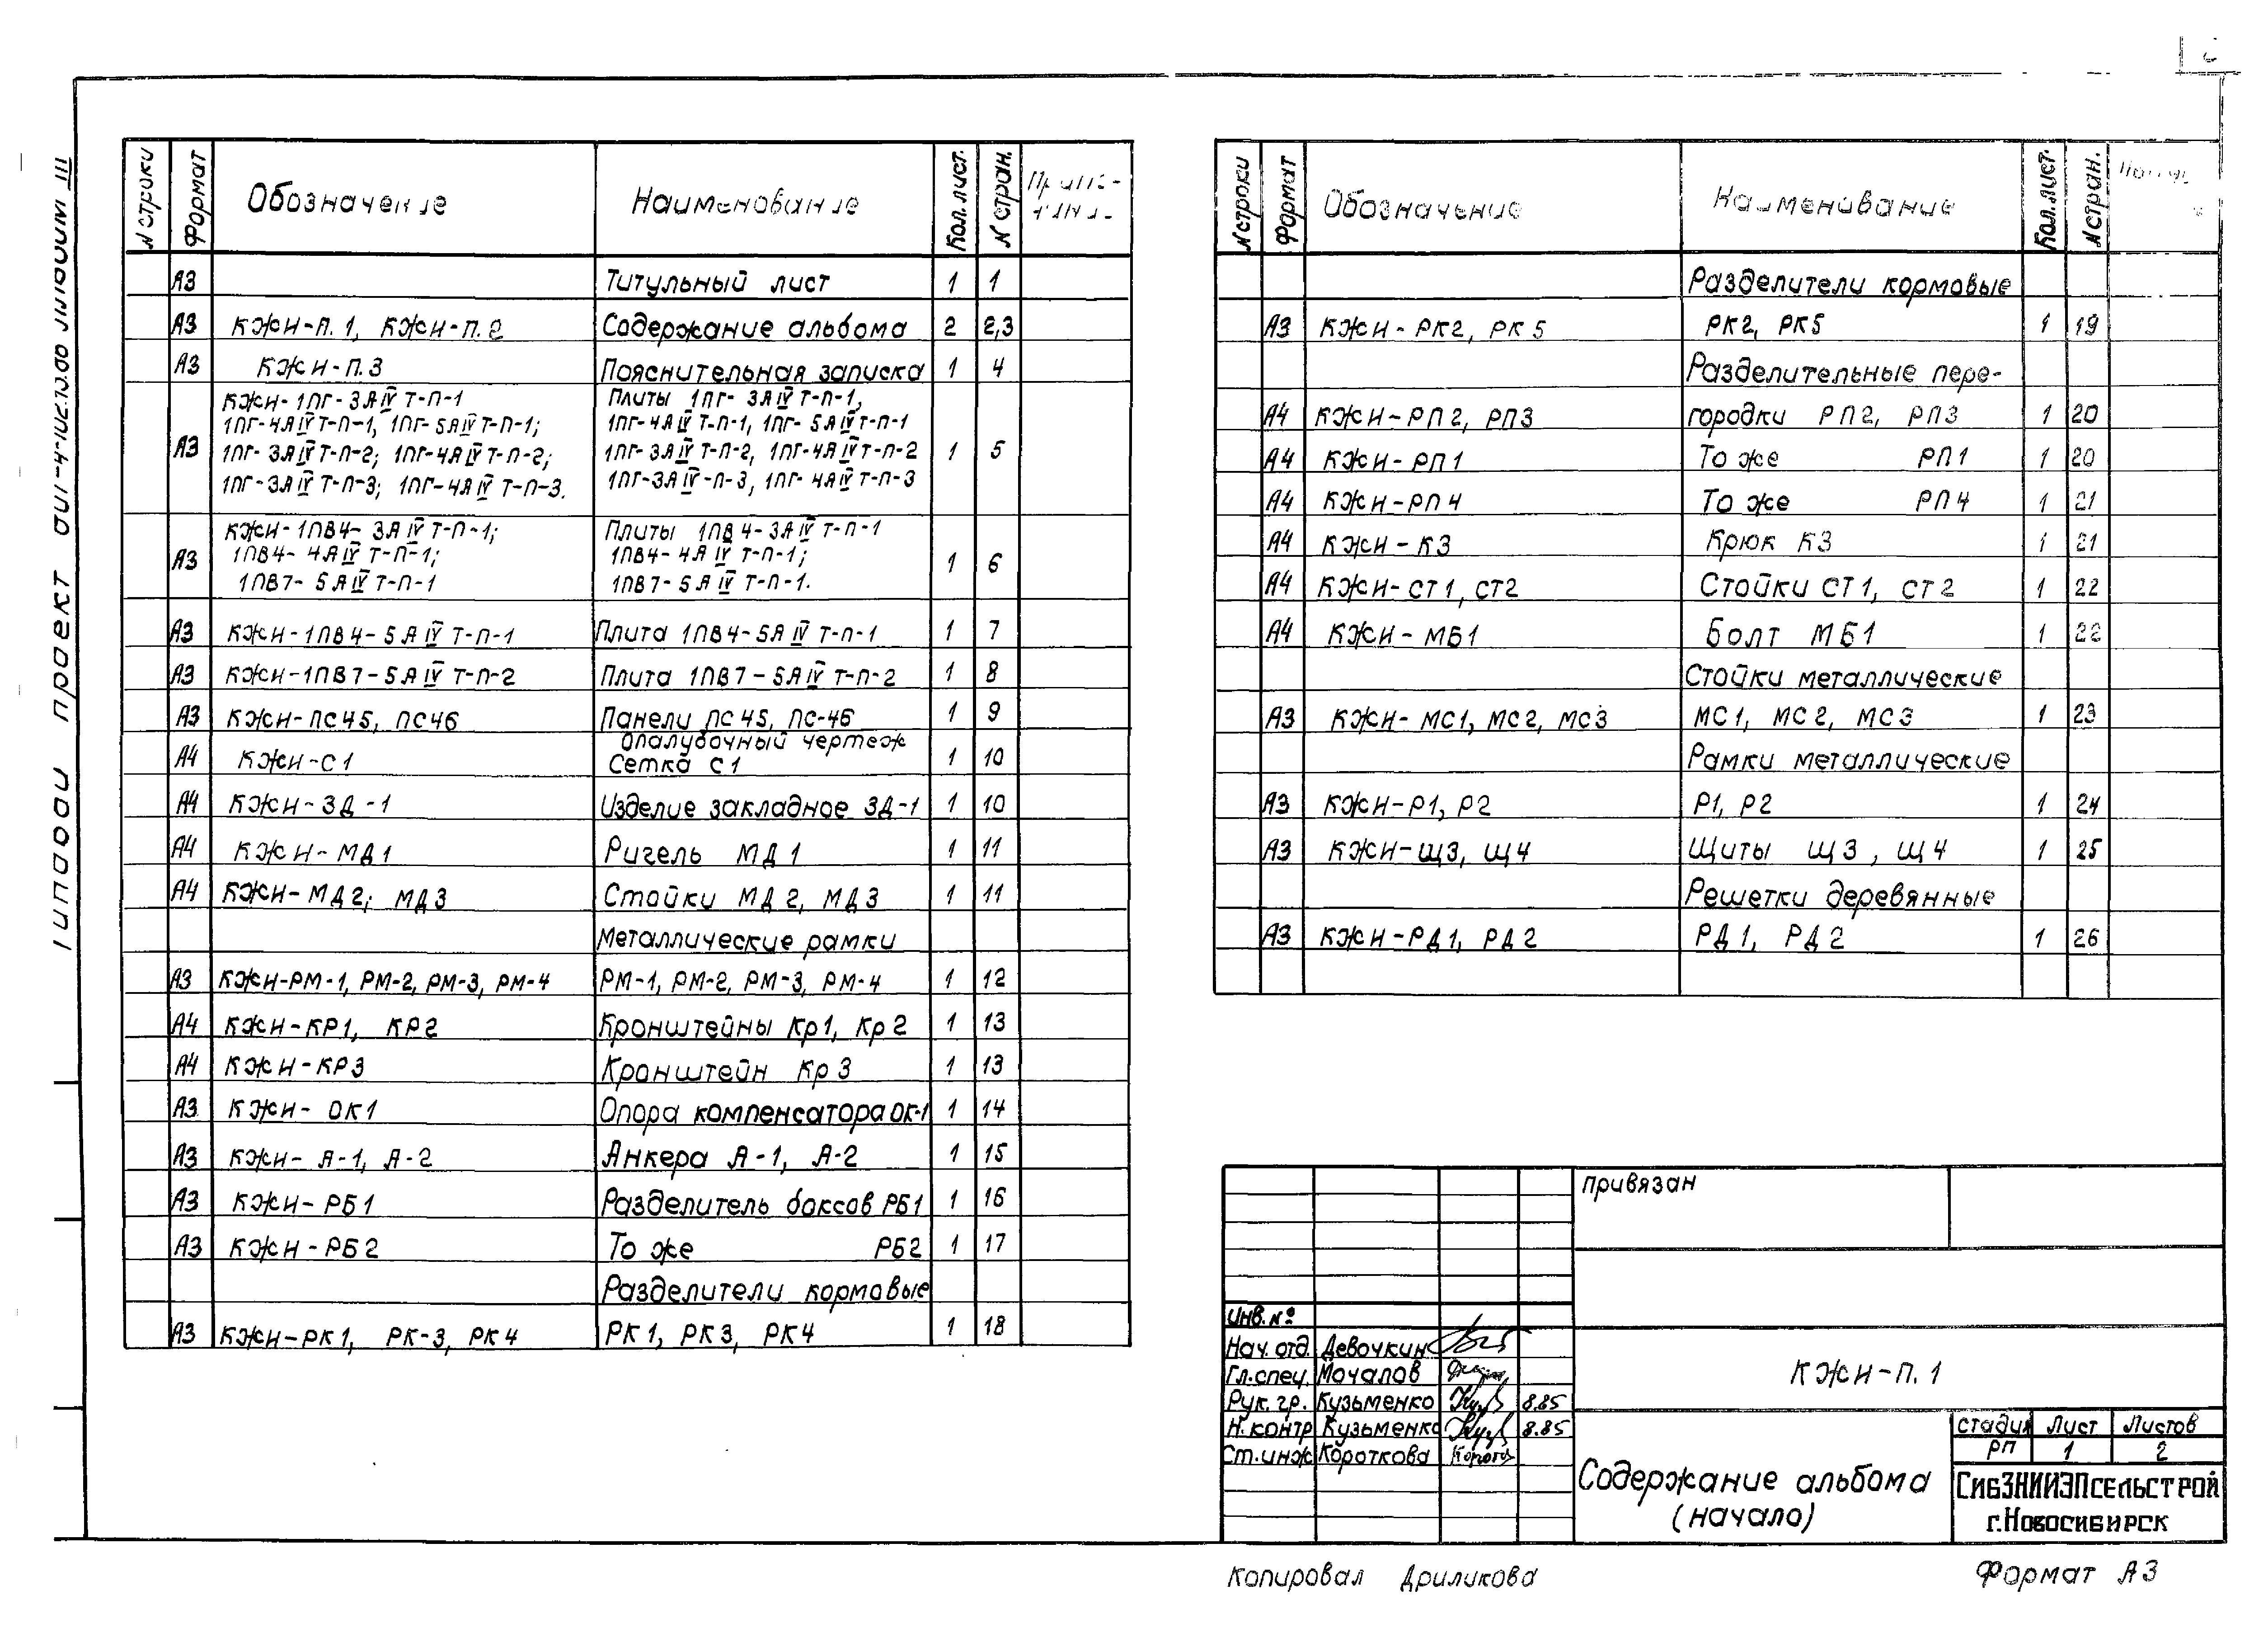 N строки Формат Обозначение Наименование Кол. лист. N стран.
А3 Титульный лист 1 1
А3 КЖИ-П.1, КЖИ-П.2 Содержание альбома 2 2,3
А3 КЖИ-П.3 Пояснительная записка 1 4
КЖИ-1ПГ-3АIV Т-П-1 Плиты 1ПГ-3АIV Т-П-1,
1ПГ-4АIV Т-П-1, 1ПГ-5АIV Т-П-1; 1ПГ-4АIV Т-П-1, 1ПГ-5АIV Т-П-1
А3 1ПГ-3АIV Т-П-2; 1ПГ-4АIV Т-П-2; 1ПГ-3АIV Т-П-2, 1ПГ-4АIV Т-П-2 1 5
1ПГ-3АIV Т-П-3; 1ПГ-4АIV Т-П-3. 1ПГ-3АIV-П-3, 1ПГ-4АIV Т-П-3
КЖИ-1ПВ4-3АIV Т-П-1; Плиты 1ПВ4-3АIV Т-П-1
А3 1ПВ4-4АIV Т-П-1; 1ПВ4-4АIV Т-П-1; 1 6
1ПВ7-5АIV Т-П-1 1ПВ7-5АIV Т-П-1.
А3 КЖИ-1ПВ4-5АIV Т-П-1 Плита 1ПВ4-5АIV Т-П-1 1 7
А3 КЖИ-1ПВ7-5АIV Т-П-2 Плита 1ПВ7-5АIV Т-П-2 1 8
А3 КЖИ-ПС45, ПС46 Панели ПС45, ПС-46 1 9
Опалубочный чертеж
А4 КЖИ-С1 Сетка С1 1 10
А4 КЖИ-ЗД-1 Изделие закладное ЗД-1 1 10
А4 КЖИ-МД1 Ригель МД1 1 11
А4 КЖИ-МД2; МД3 Стойки МД2, МД3 1 11
Металлические рамки
А3 КЖИ-РМ-1, РМ-2, РМ-3, РМ-4 РМ-1, РМ-2, РМ-3, РМ-4 1 12
А4 КЖИ-КР1, КР2 Кронштейны Кр1, Кр2 1 13
А4 КЖИ-КР3 Кронштейн Кр3 1 13
А3 КЖИ-ОК1 Опора компенсатора ОК-1 1 14
А3 КЖИ-А-1, А-2 Анкера А-1, А-2 1 15
А3 КЖИ-РБ1 Разделитель боксов РБ1 1 16
А3 КЖИ-РБ2 То же РБ2 1 17
Разделители кормовые
А3 КЖИ-РК1, РК-3, РК4 РК1, РК3, РК4 1 18
N строки Формат Обозначение Наименование Кол. лист. N стран.
Разделители кормовые
А3 КЖИ-РК2, РК5 РК2, РК5 1 19
Разделительные пере-
А4 КЖИ-РП2, РП3 городки РП2, РП3 1 20
А4 КЖИ-РП1 То же РП1 1 20
А4 КЖИ-РП4 То же РП4 1 21
А4 КЖИ-К3 Крюк К3 1 21
А4 КЖИ-СТ1, СТ2 Стойки СТ1, СТ2 1 22
А4 КЖИ-МБ1 Болт МБ1 1 22
Стойки металлические
А3 КЖИ-МС1, МС2, МС3 МС1, МС2, МС3 1 23
Рамки металлические
А3 КЖИ-Р1, Р2 Р1, Р2 1 24
А3 КЖИ-Щ3, Щ4 Щиты Щ3, Щ4 1 25
Решетки деревянные
А3 КЖИ-РД1, РД2 РД1, РД2 1 26
Привязан
Инв. №
Нач. отд. Девочкин
Гл. спец. Мочалов
Рук. гр. Кузьменко 8.85
Н. контр Кузьменко 8.85
Ст. инж Короткова
КЖИ-П.1
Содержание альбома
(начало)
Стадия Лист Листов
РП 1 2
СибЗНИИЭПсельстрой
г. Новосибирск
Копировал Дриликова
Формат А3